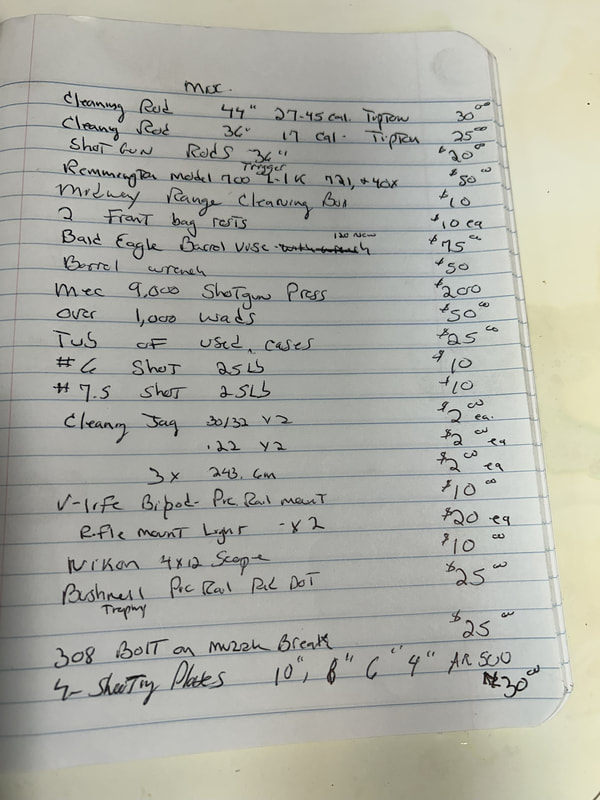 Misc.
Cleaning Rod 44" 27-45 cal. Tipton 30⁰⁰
Cleang Rod 36" 17 Cal. Tipton 25⁰⁰
Shot Gun Rods 36" $20⁰⁰
Trigger
Remmington Model 700 721, + 40x $50⁰⁰
Midway Range Cleaning Box $10
2 Front bag rests $10 ea
Bald Eagle Barrel Vise $75⁰⁰
Barrel wrench $50
Mec 9,000 ShoTgun Press $200
over 1,000 wads $50⁰⁰
Tub of used cases $25⁰⁰
#6 Shot 25Lb $10
#7.5 Shot 25Lb $10
Cleang Jag 30/32 x2 $2⁰⁰ ea.
.22 x2 $2⁰⁰ ea
3x 243. 6m $2⁰⁰ ea
V-life Bipod- Pic Rail mount $10⁰⁰
Rifle mount Light -x2 $20 ea
Nikon 4x12 Scope $10⁰⁰
Bushnell Pic Rail Red DOT $25⁰⁰
Trophy
308 BolT on muzzle Break $25⁰⁰
4- ShooTing Plates 10", 8" 6" 4" AR500 $30⁰⁰